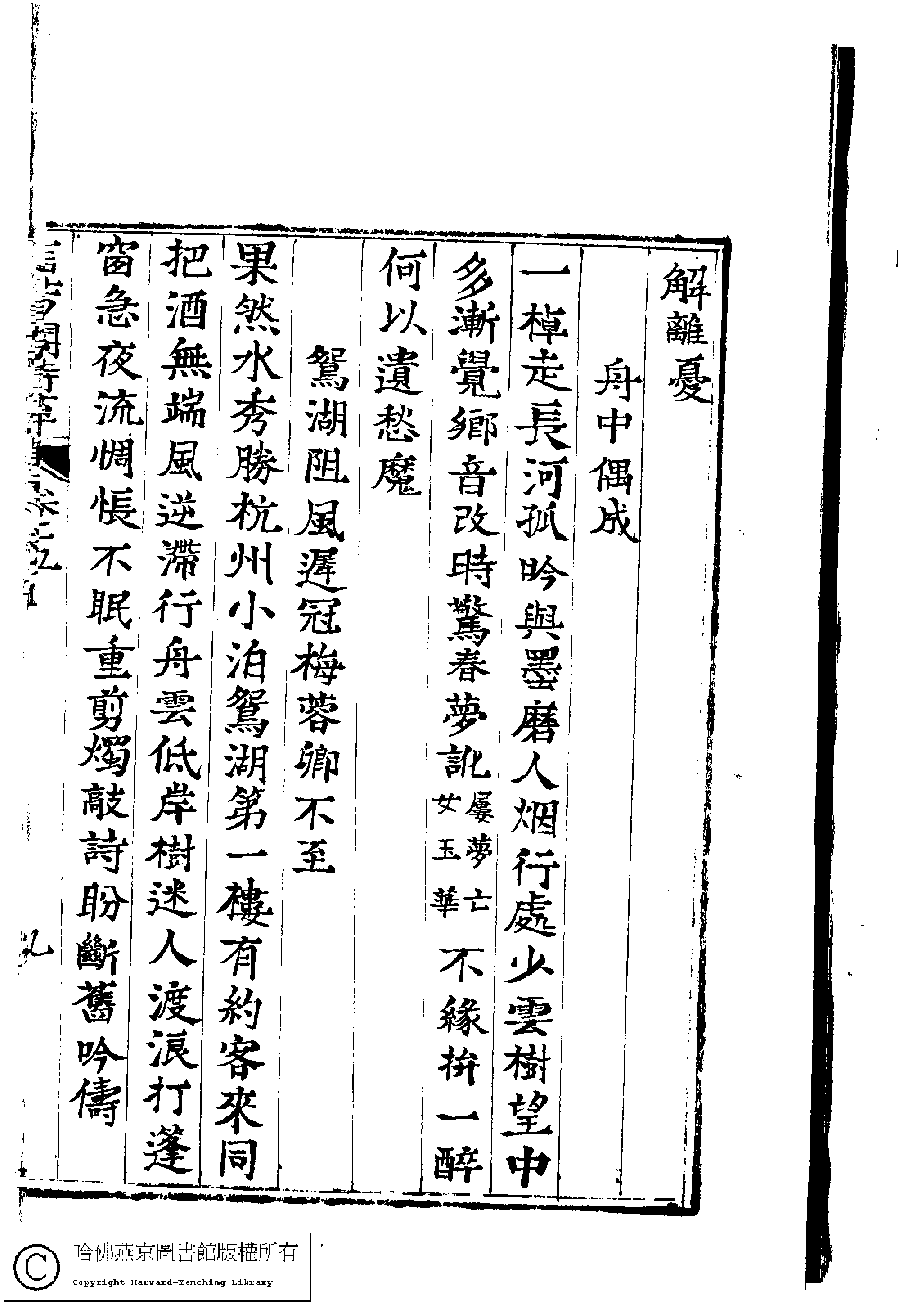 解離憂
舟中偶成
一棹走長河孤吟與墨磨人烟行處少雲樹望中
多漸覺鄉音改時驚春夢訛屢夢亡女玉華不緣拚一醉
何以遺愁魔
鴛湖阻風遲冠梅蓉卿不至
果然水秀勝杭州小泊鴛湖第一樓有約客來同
把酒無端風逆滯行舟雲低岸樹迷人渡浪打蓬
窗急夜流惆悵不眠重剪燭敲詩盼斷舊吟儔
哈佛燕京圖書館版權所有
Copyright Harvard-Yenching Library